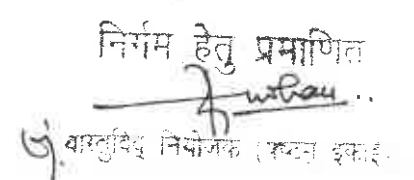 निर्गम हेतु प्रमाणित
वास्तुविद् नियोजक ( इकाई